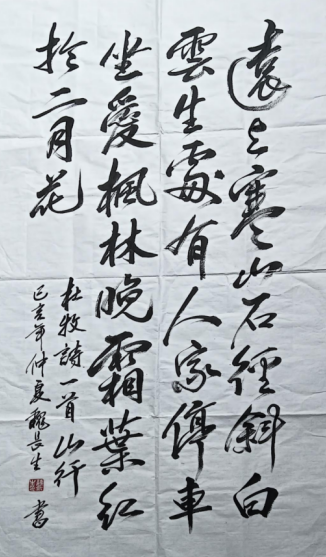 遠上寒山石徑斜白
雲生處有人家停車
坐愛楓林晚霜葉紅
於二月花
杜牧詩一首山行
己亥年仲夏魏長生
書